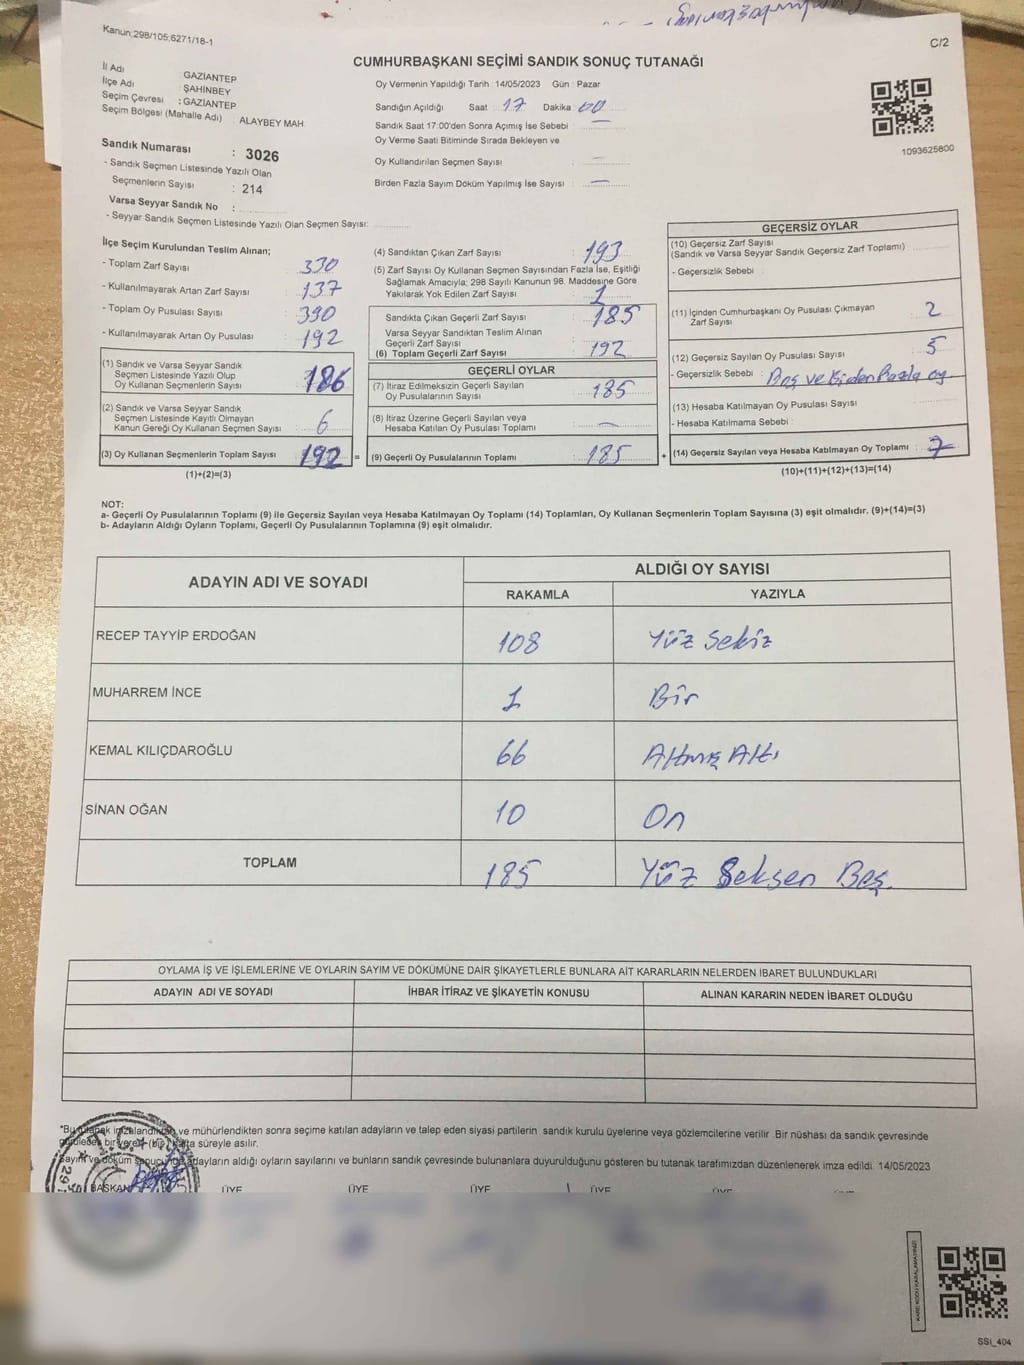 Kanun;298/105;6271/18-1
C/2
CUMHURBAŞKANI SEÇİMİ SANDIK SONUÇ TUTANAĞI
İl Adı GAZIANTEP
İlçe Adı : ŞAHİNBEY
Seçim Çevresi : GAZIANTEP
Seçim Bölgesi (Mahalle Adı) : ALAYBEY MAH.
Oy Vermenin Yapıldığı Tarih : 14/05/2023 Gün : Pazar
Sandığın Açıldığı Saat 17 Dakika 00
Sandık Saat 17:00'den Sonra Açımış İse Sebebi : —
Oy Verme Saati Bitiminde Sırada Bekleyen ve
Oy Kullandırılan Seçmen Sayısı : —
Birden Fazla Sayım Döküm Yapılmış İse Sayısı : —
1093625800
Sandık Numarası : 3026
- Sandık Seçmen Listesinde Yazılı Olan
Seçmenlerin Sayısı : 214
Varsa Seyyar Sandık No :
- Seyyar Sandık Seçmen Listesinde Yazılı Olan Seçmen Sayısı:
İlçe Seçim Kurulundan Teslim Alınan;
- Toplam Zarf Sayısı 330
- Kullanılmayarak Artan Zarf Sayısı : 137
- Toplam Oy Pusulası Sayısı : 390
- Kullanılmayarak Artan Oy Pusulası : 192
(1) Sandık ve Varsa Seyyar Sandık
Seçmen Listesinde Yazılı Olup
Oy Kullanan Seçmenlerin Sayısı : 186
(2) Sandık ve Varsa Seyyar Sandık
Seçmen Listesinde Kayıtlı Olmayan
Kanun Gereği Oy Kullanan Seçmen Sayısı : 6
(3) Oy Kullanan Seçmenlerin Toplam Sayısı : 192 =
(1)+(2)=(3)
(4) Sandıktan Çıkan Zarf Sayısı : 193
(5) Zarf Sayısı Oy Kullanan Seçmen Sayısından Fazla İse, Eşitliği
Sağlamak Amacıyla; 298 Sayılı Kanunun 98. Maddesine Göre
Yakılarak Yok Edilen Zarf Sayısı : 1
Sandıkta Çıkan Geçerli Zarf Sayısı : 185
Varsa Seyyar Sandıktan Teslim Alınan
Geçerli Zarf Sayısı :
(6) Toplam Geçerli Zarf Sayısı : 192
GEÇERLİ OYLAR
(7) İtiraz Edilmeksizin Geçerli Sayılan
Oy Pusulalarının Sayısı : 185
(8) İtiraz Üzerine Geçerli Sayılan veya
Hesaba Katılan Oy Pusulası Toplamı : —
(9) Geçerli Oy Pusulalarının Toplamı : 185 +
GEÇERSİZ OYLAR
(10) Geçersiz Zarf Sayısı
(Sandık ve Varsa Seyyar Sandık Geçersiz Zarf Toplamı) :
- Geçersizlik Sebebi :
(11) İçinden Cumhurbaşkanı Oy Pusulası Çıkmayan
Zarf Sayısı : 2
(12) Geçersiz Sayılan Oy Pusulası Sayısı : 5
- Geçersizlik Sebebi : Boş ve Birden Fazla oy
(13) Hesaba Katılmayan Oy Pusulası Sayısı :
- Hesaba Katılmama Sebebi :
(14) Geçersiz Sayılan veya Hesaba Katılmayan Oy Toplamı : 7
(10)+(11)+(12)+(13)=(14)
NOT:
a- Geçerli Oy Pusulalarının Toplamı (9) ile Geçersiz Sayılan veya Hesaba Katılmayan Oy Toplamı (14) Toplamları, Oy Kullanan Seçmenlerin Toplam Sayısına (3) eşit olmalıdır. (9)+(14)=(3)
b- Adayların Aldığı Oyların Toplamı, Geçerli Oy Pusulalarının Toplamına (9) eşit olmalıdır.
ADAYIN ADI VE SOYADI ALDIĞI OY SAYISI
RAKAMLA YAZIYLA
RECEP TAYYİP ERDOĞAN 108 Yüz Sekiz
MUHARREM İNCE 1 Bir
KEMAL KILIÇDAROĞLU 66 Altmış Altı
SİNAN OĞAN 10 On
TOPLAM 185 Yüz Seksen Beş.
OYLAMA İŞ VE İŞLEMLERİNE VE OYLARIN SAYIM VE DÖKÜMÜNE DAİR ŞİKAYETLERLE BUNLARA AİT KARARLARIN NELERDEN İBARET BULUNDUKLARI
ADAYIN ADI VE SOYADI İHBAR İTİRAZ VE ŞİKAYETİN KONUSU ALINAN KARARIN NEDEN İBARET OLDUĞU
"Bu tutanak imzalandıktan ve mühürlendikten sonra seçime katılan adayların ve talep eden siyasi partilerin sandık kurulu üyelerine veya gözlemcilerine verilir. Bir nüshası da sandık çevresinde
görülecek bir yere (bir) hafta süreyle asılır.
Sayım ve döküm sonucunda adayların aldığı oyların sayılarını ve bunların sandık çevresinde bulunanlara duyurulduğunu gösteren bu tutanak tarafımızdan düzenlenerek imza edildi. 14/05/2023
BAŞKAN ÜYE ÜYE ÜYE ÜYE ÜYE ÜYE
T.C.
SSİ_404